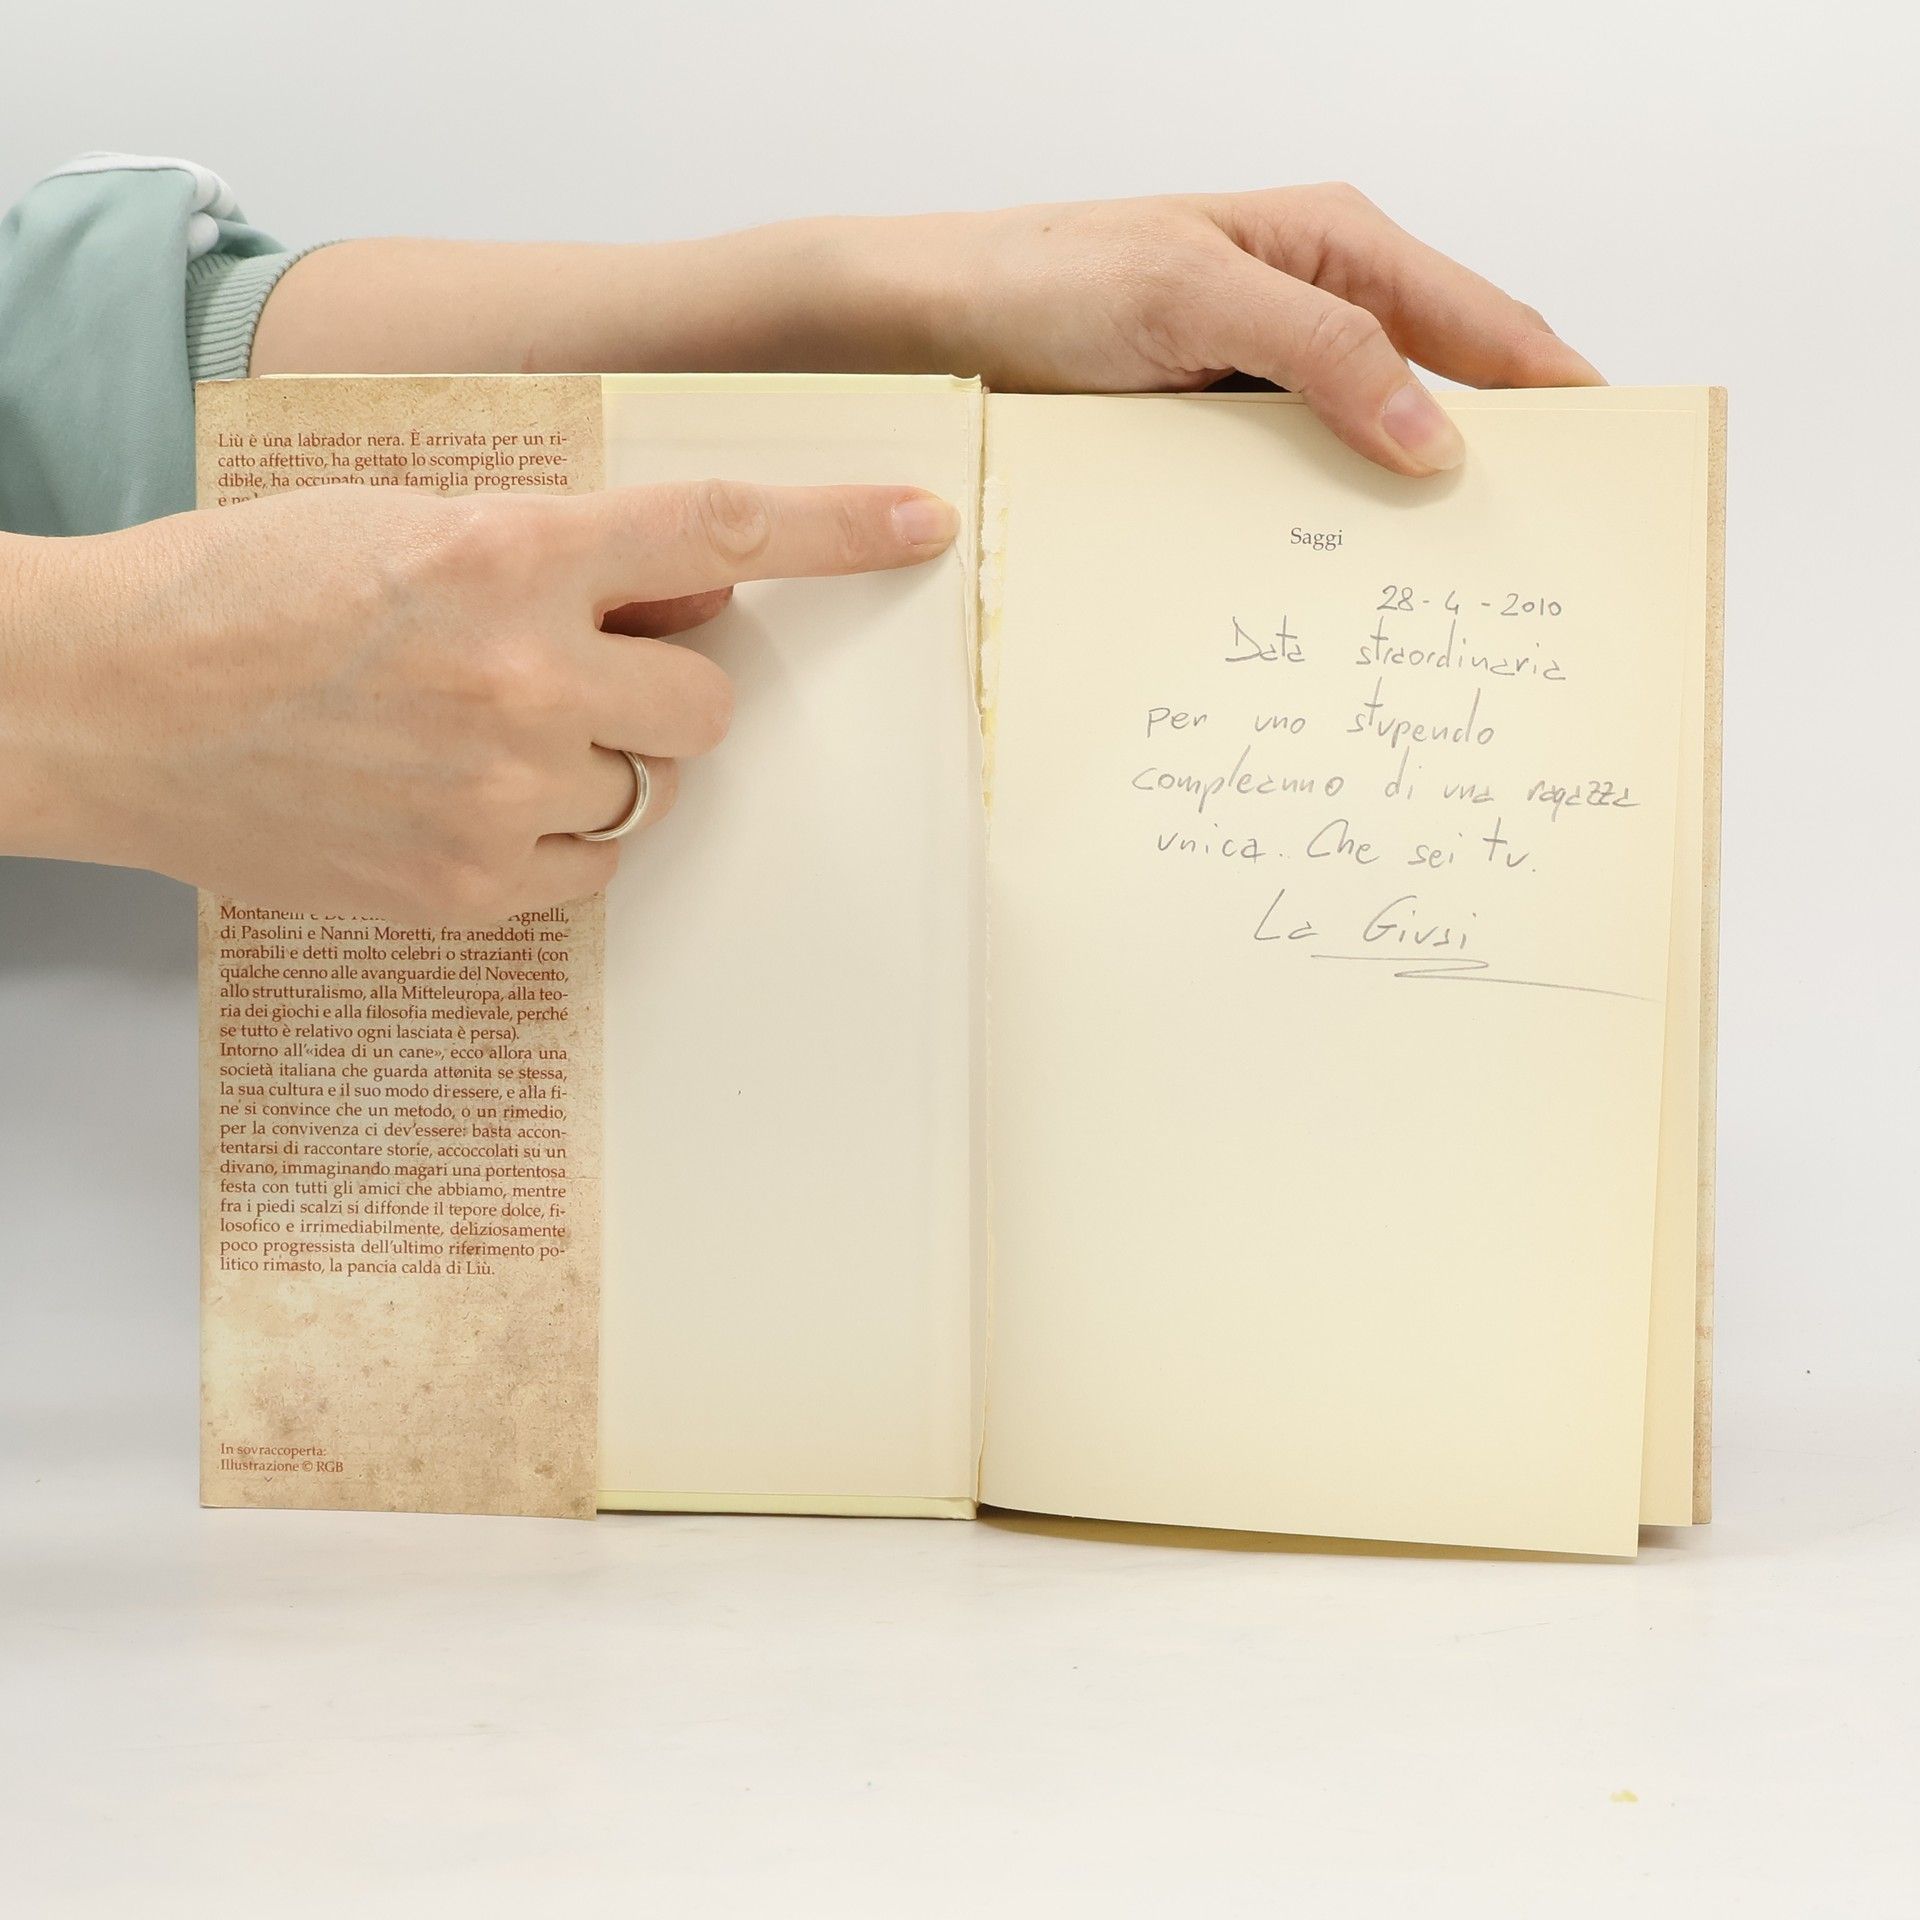 Liù è una labrador nera. È arrivata per un ri-
catto affettivo, ha gettato lo scompiglio preve-
dibile, ha occupato una famiglia progressista
e
Montanelli e De Agnelli,
di Pasolini e Nanni Moretti, fra aneddoti me-
morabili e detti molto celebri o strazianti (con
qualche cenno alle avanguardie del Novecento,
allo strutturalismo, alla Mitteleuropa, alla teo-
ria dei giochi e alla filosofia medievale, perché
se tutto è relativo ogni lasciata è persa).
Intorno all'«idea di un cane», ecco allora una
società italiana che guarda attonita se stessa,
la sua cultura e il suo modo di essere, e alla fi-
ne si convince che un metodo, o un rimedio,
per la convivenza ci dev'essere: basta accon-
tentarsi di raccontare storie, accoccolati su un
divano, immaginando magari una portentosa
festa con tutti gli amici che abbiamo, mentre
fra i piedi scalzi si diffonde il tepore dolce, fi-
losofico e irrimediabilmente, deliziosamente
poco progressista dell'ultimo riferimento po-
litico rimasto, la pancia calda di Liù.
In sovraccoperta:
Illustrazione © RGB
Saggi
28-4-2010
Data straordinaria
per uno stupendo
compleanno di una ragazza
unica. Che sei tu.
La Giusi